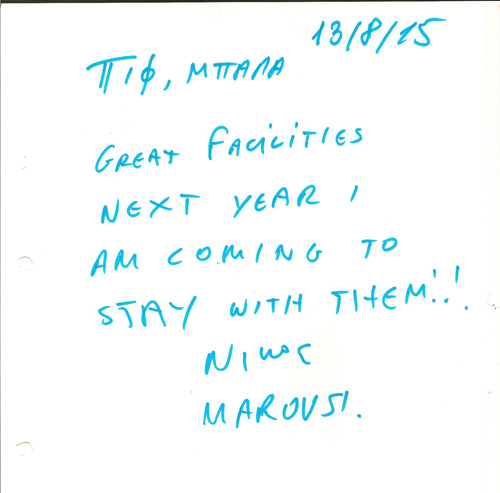 13/8/15
ΠΙΦ, ΜΠΑΛΑ
GREAT FACILITIES
NEXT YEAR I
AM COMING TO
STAY WITH THEM!.!.
Νικος
MAROUSI.